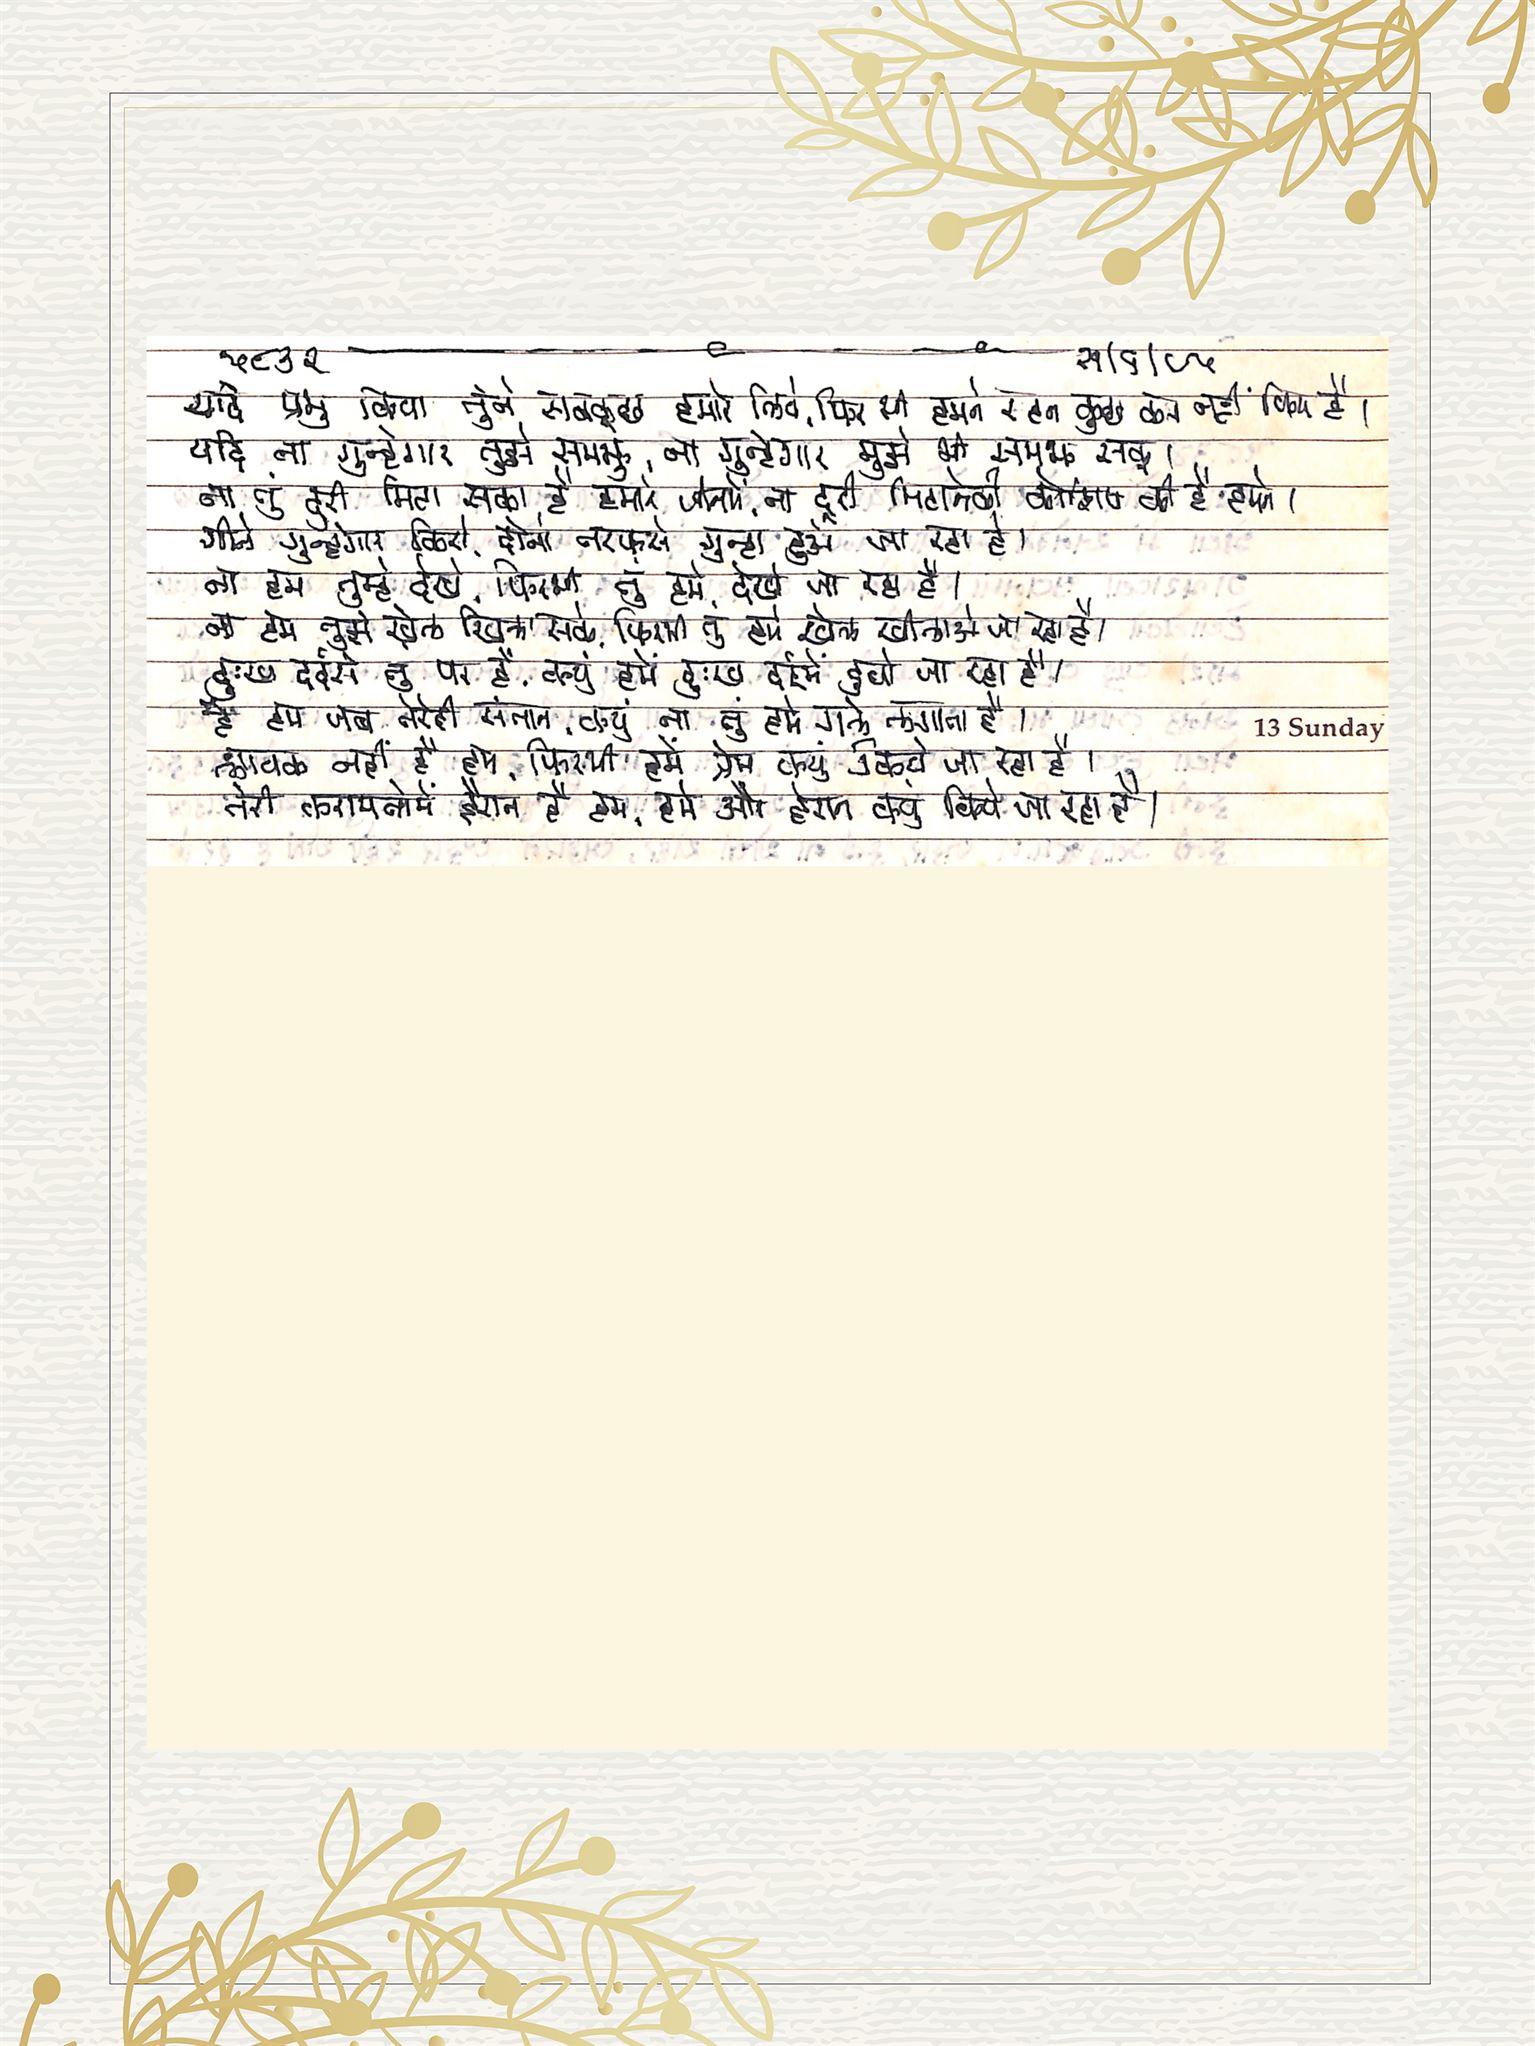 ५८३२ २५/६/८५
यदि प्रभु किया तुंने सबकुछ हमारे लिये, फिर भी हमने सहन कुछ कम नहीं किया है।
यदि ना गुन्हेगार तुझे समझु, ना गुन्हेगार मुझे भी समझ सकु।
ना तुं दुरी मिटा सका है हमारे जीवनमें, ना दूरी मिटानेकी कोशिश की है हमने।
गीने गुन्हेगार किसे, दोनों तरफसे गुन्हा हुअे जा रहा है।
ना हम तुम्हे देखे, फिरभी तुं हमे देखे जा रहा है।
ना हम तुझे खेल खिला सके, फिरभी तु हमे खेल खीलाअे जा रहा है।
दुःख दर्दसे तु पर है, कयुं हमें दुःख दर्दमें डुबो जा रहा है।
है हम जब तेरेही संतान, कयुं ना तुं हमे गले लगाता है।
13 Sunday
लायक नहीं है हम, फिरभी हमें प्रेम कयुं किये जा रहा है।
तेरी करामतोमें हैरान है हम, हमे और हेरान कयुं किये जा रहा है।